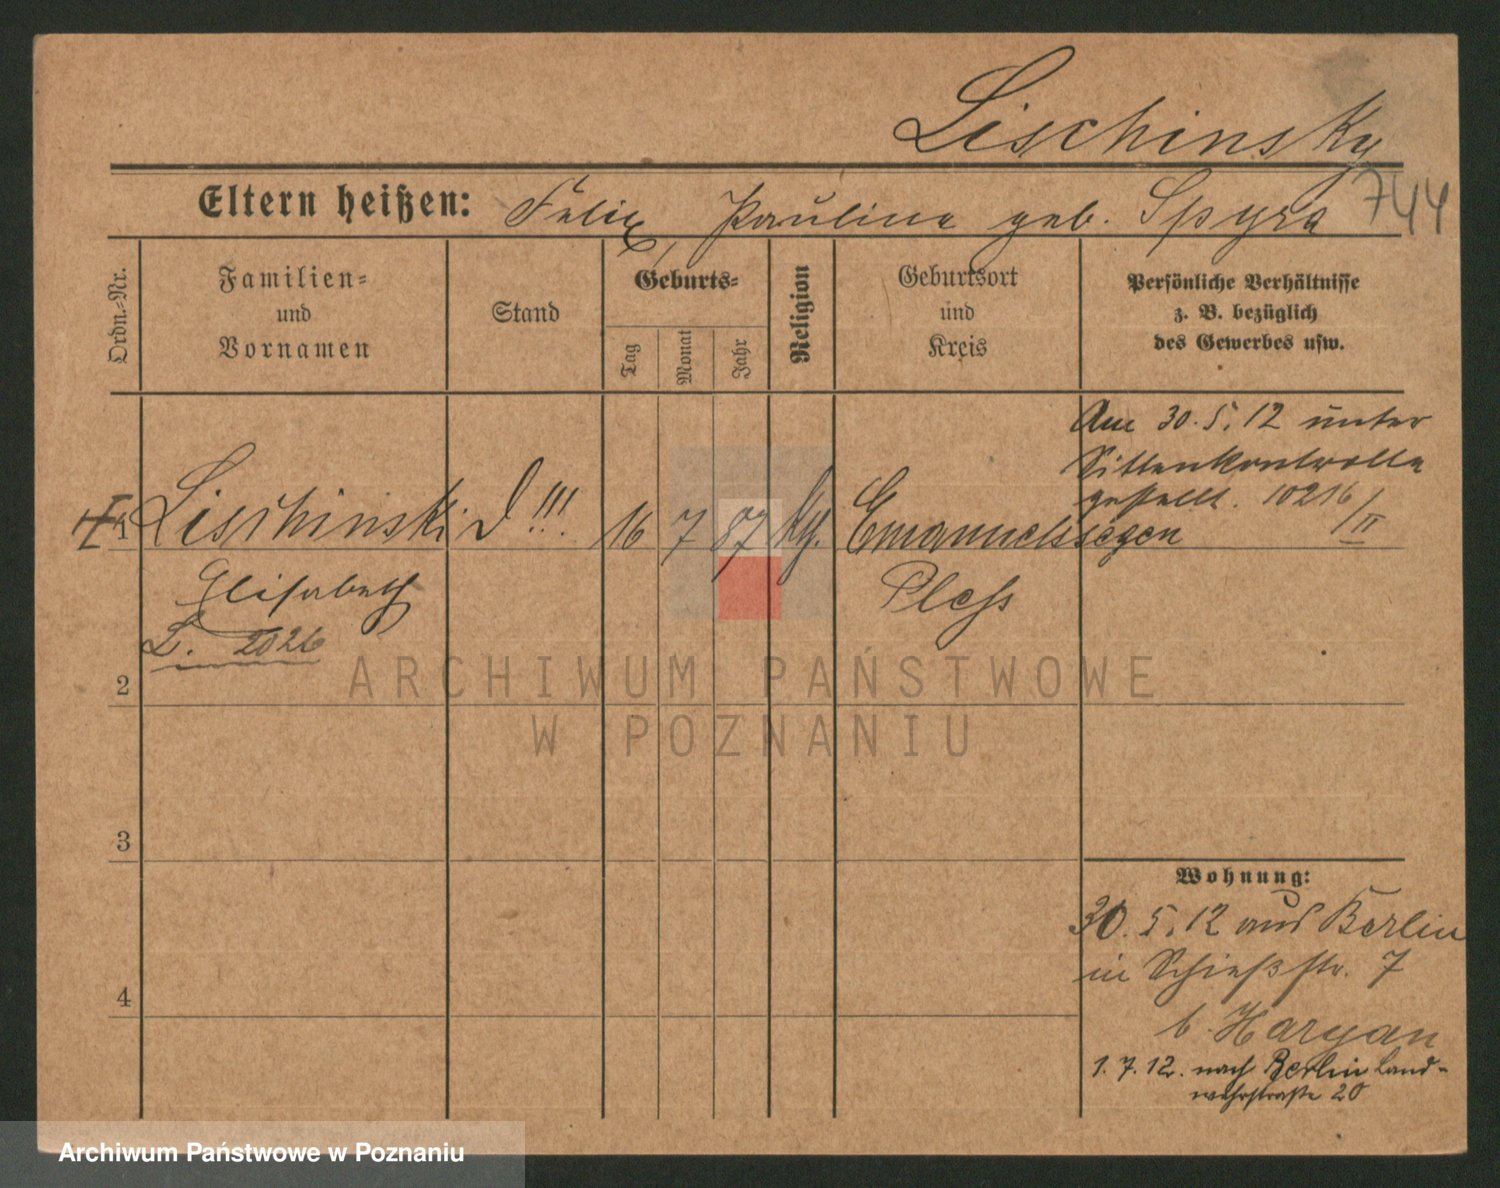 Lischinsky
Eltern heißen: Felix, Paulina geb. Spyra 744
Ordn.-Nr.
Familien-
und
Vornamen
Stand
Geburts-
Tag
Monat
Jahr
Religion
Geburtsort
und
Kreis
Persönliche Verhältnisse
z. B. bezüglich
des Gewerbes usw.
Am 30.5.12 unter
Sittenkontrolle
gestellt. 10216/II
1 Lischinski D!!! 16 7 87 Emanuelssegen
Elisabeth Pless
L. 2026
2
3
4
Wohnung:
30.5.12 aus Berlin
in Schießstr. 7
b. Haryan
1.7.12. nach Berlin Land-
wehrstraße 20
ARCHIWUM PAŃSTWOWE
W POZNANIU
Archiwum Państwowe w Poznaniu